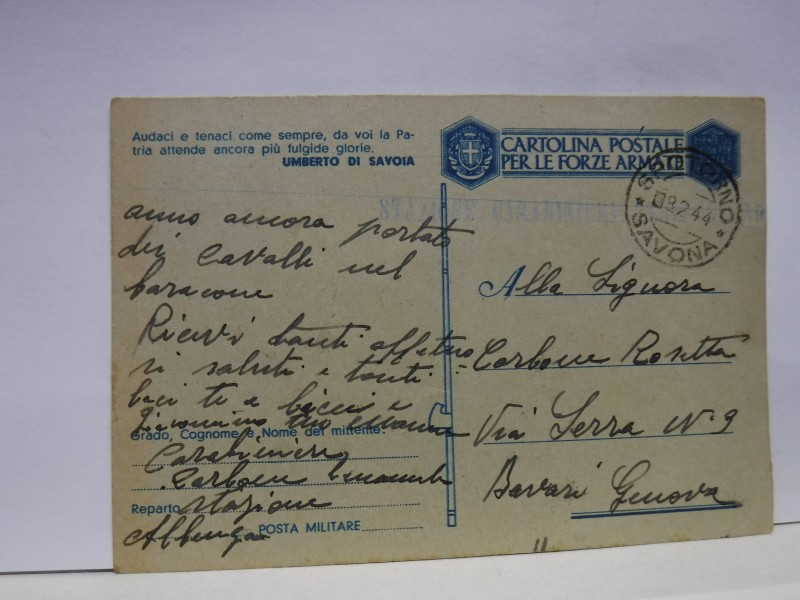 Audaci e tenaci come sempre, da voi la Pa-
tria attende ancora più fulgide glorie.
UMBERTO DI SAVOIA
CARTOLINA POSTALE
PER LE FORZE ARMATE
8.2.44
SAVONA
STAZIONE
anno ancora portato
dei cavalli nel
baracone
Ricevi tanti affetuo
si saluti e tanti
baci te e
tuo
Grado, Cognome e Nome del mittente:
Carabiniere
Carbone
Reparto stazione
Albenga POSTA MILITARE
Alla Signora
Carbone Rosetta
Via Serra N° 9
Bavari Genova